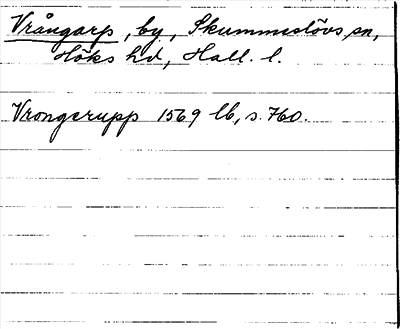 Vrångarp, by, Skummeslövs sn,
Höks hd, Hall. l.
Vrongerupp 1569 lb, s. 760.